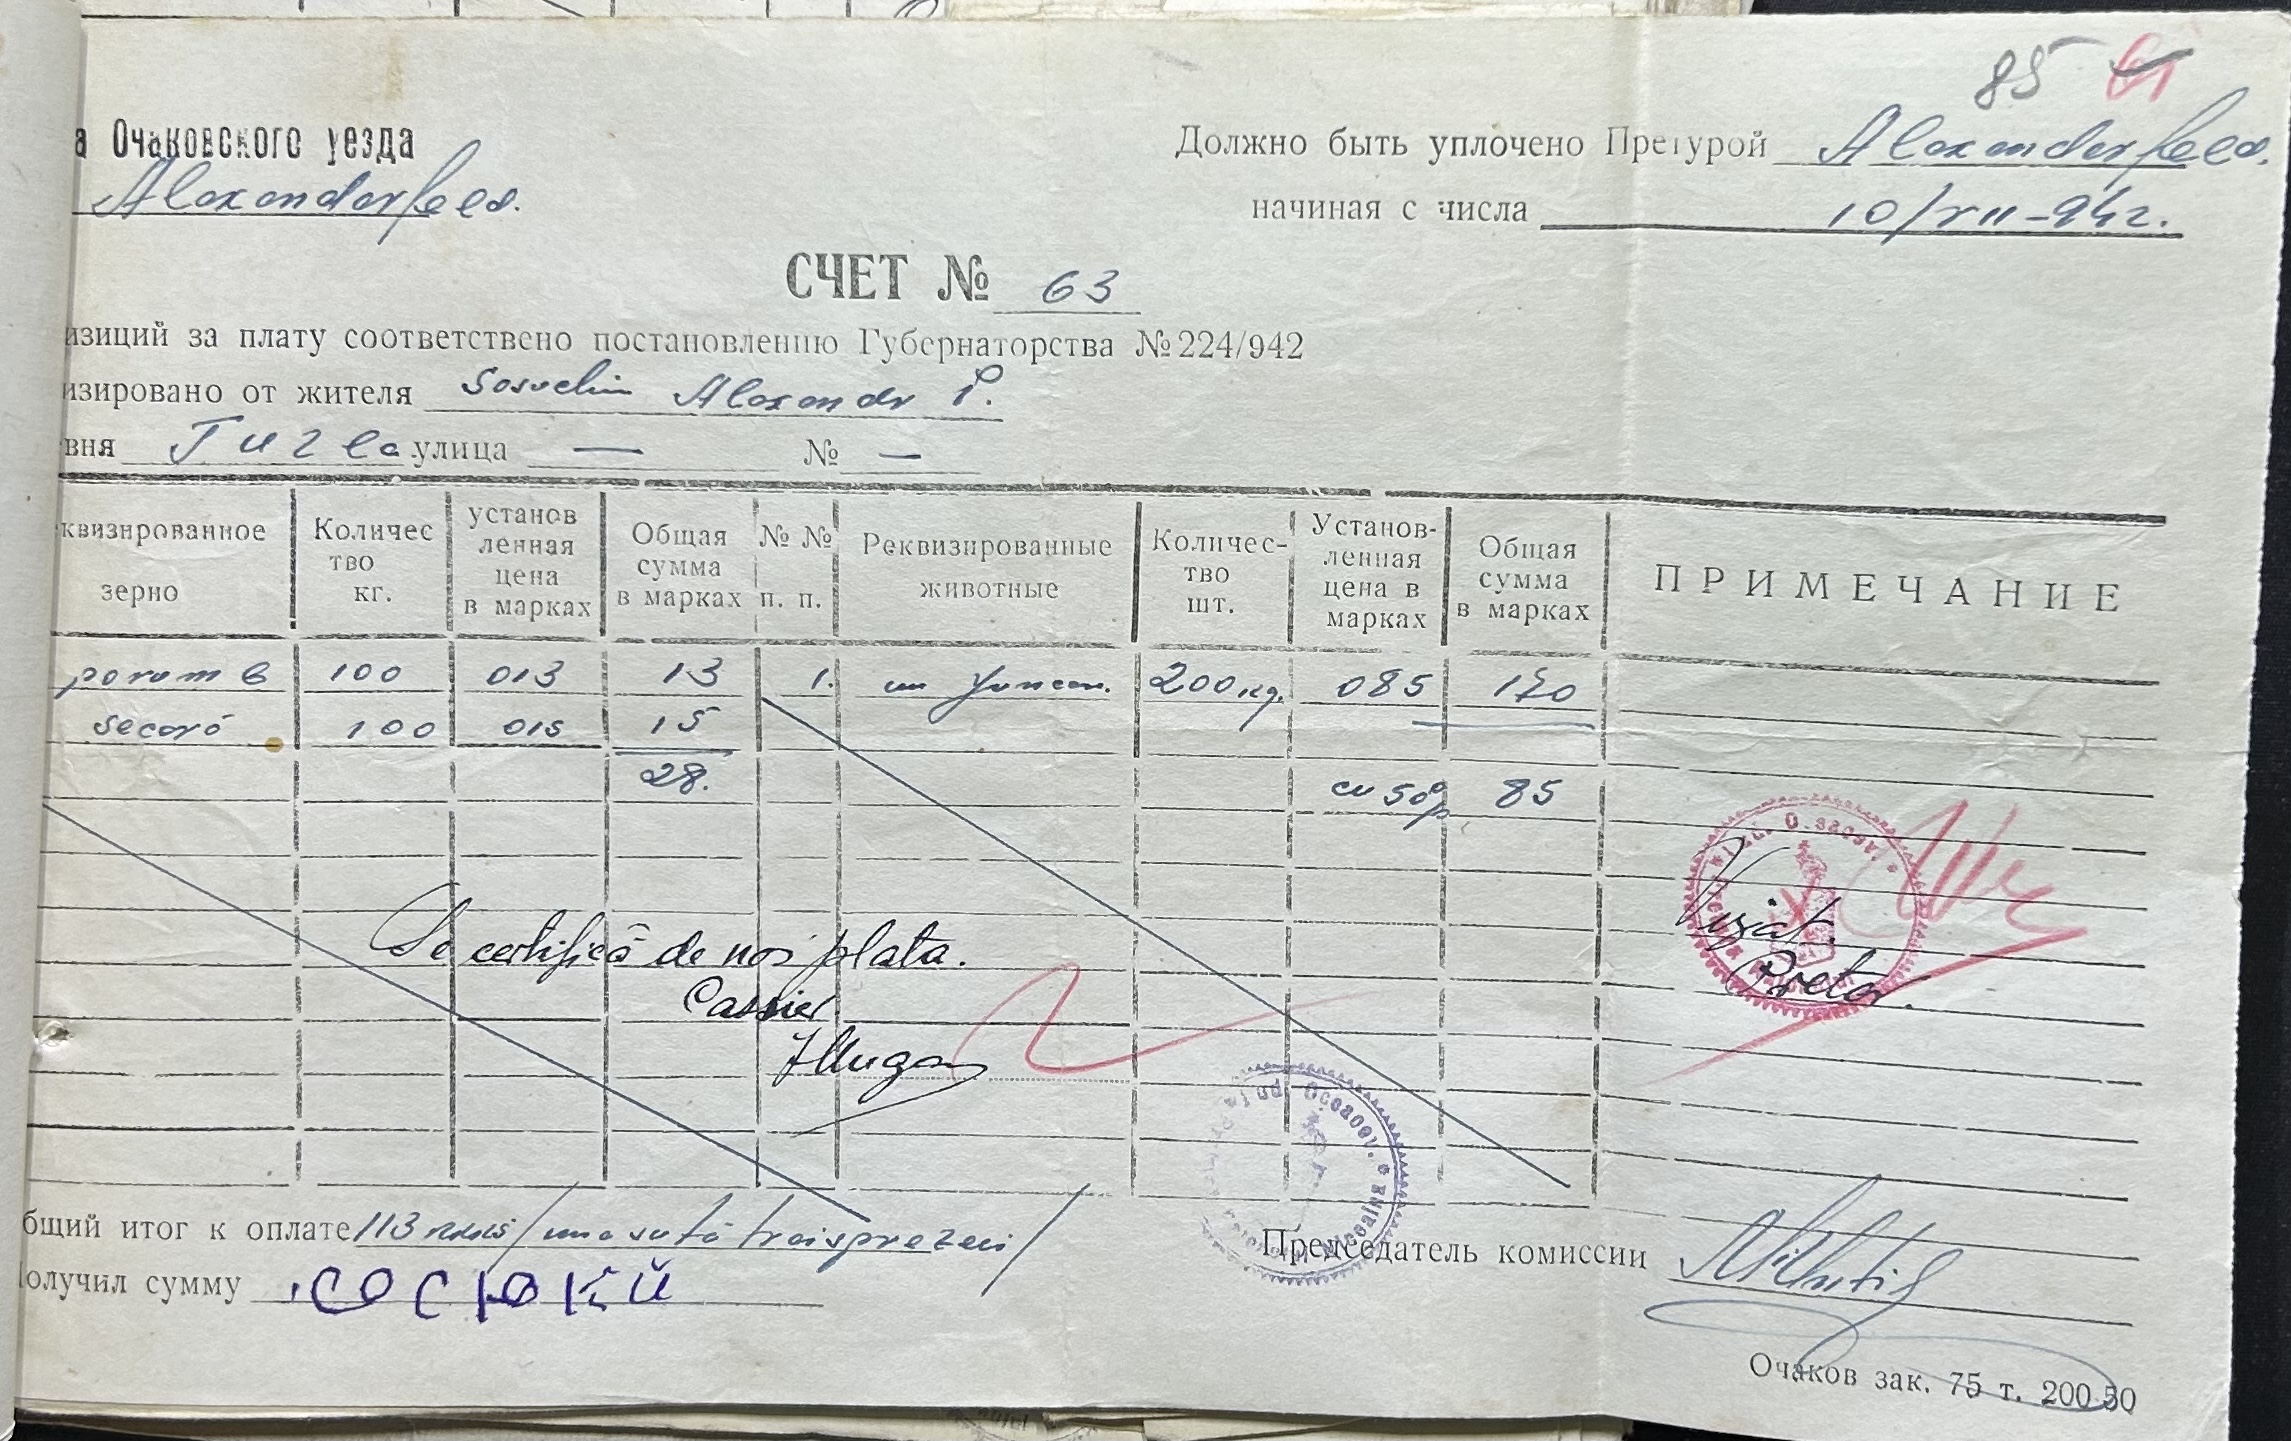 85 61
а Очаковского уезда
Alexanderfeld.
Должно быть уплочено Претурой Alexanderfeld.
начиная с числа 10/XII-942.
СЧЕТ № 63
изиций за плату соответствено постановлению Губернаторства № 224/942
изировано от жителя Alexandr P.
вня улица — № —
квизированное зерно
Количес тво кг.
установ ленная цена в марках
Общая сумма в марках
№ № п. п.
Реквизированные животные
Количес- тво шт.
Установ- ленная цена в марках
Общая сумма в марках
ПРИМЕЧАНИЕ
porumb 100 013 13 1. un juncan. 200 kg. 085 170
secară 100 015 15
28. cu 50% 85
Se certifică de noi plata.
Cassier
Vizat.
Pretor.
бщий итог к оплате 113 /una sută treisprezeci/
Председатель комиссии
олучил сумму СОСЮКЙ
Очаков зак. 75 т. 200.50